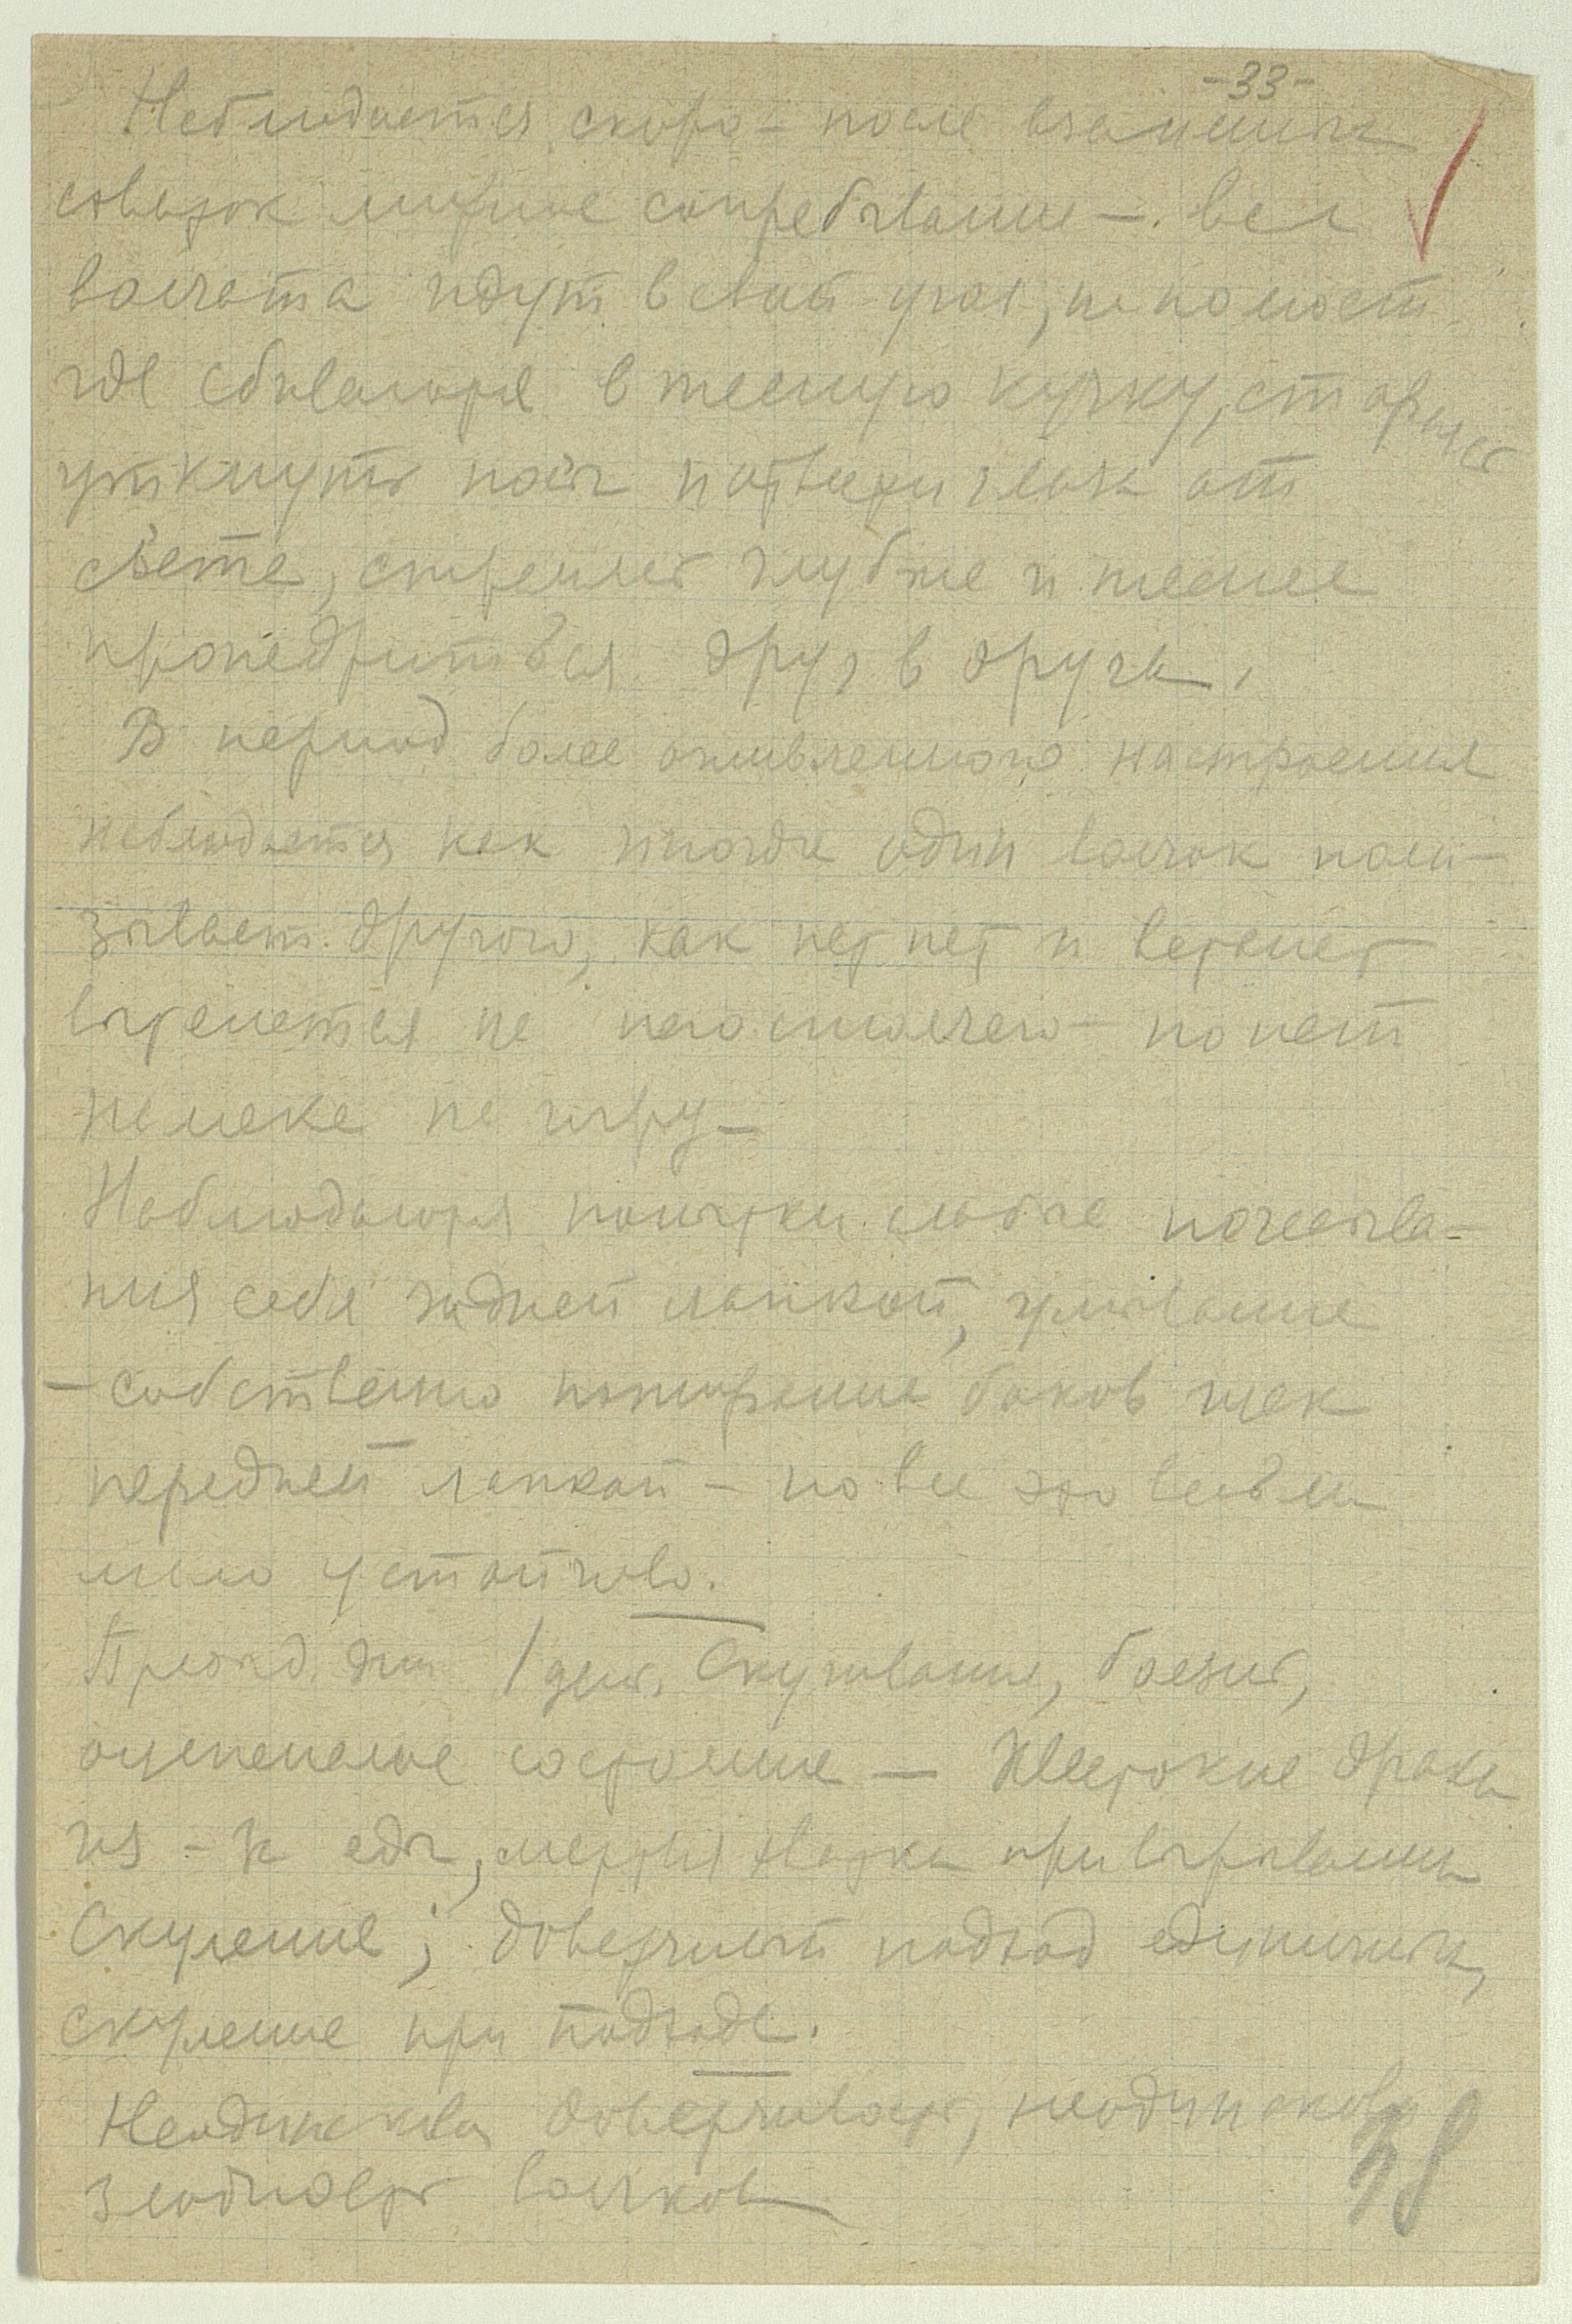 -33-
Наблюдается скоро - после взаимных
схваток мирное сопребывание - все
волчата идут в свой угол, на помост
где сбиваются в тесную кучку, стараясь
уткнуть носы и отвести глаза от
света, стремясь глубже и теснее
друг в друга.
В период более оживленного настроения
наблюдается как иногда один волчок поли-
зывает другого, как
не - но нет
намека на игру -
Наблюдаются попытки слабые почесыва-
ния себя задней лапкой, умывание
- собственно потирание боков щек
передней лапкой - но все это весьма
мало устойчиво.
1 день. Скучивание, боязнь,
оцепенелое состояние - Жестокие драки
из-за еды, мертвая хватка при вырывании
Скуление; доверчивый подход единичных,
скуление при подходе.
Неодинаковая доверчивость, неодинаковая
злобность волчков
38